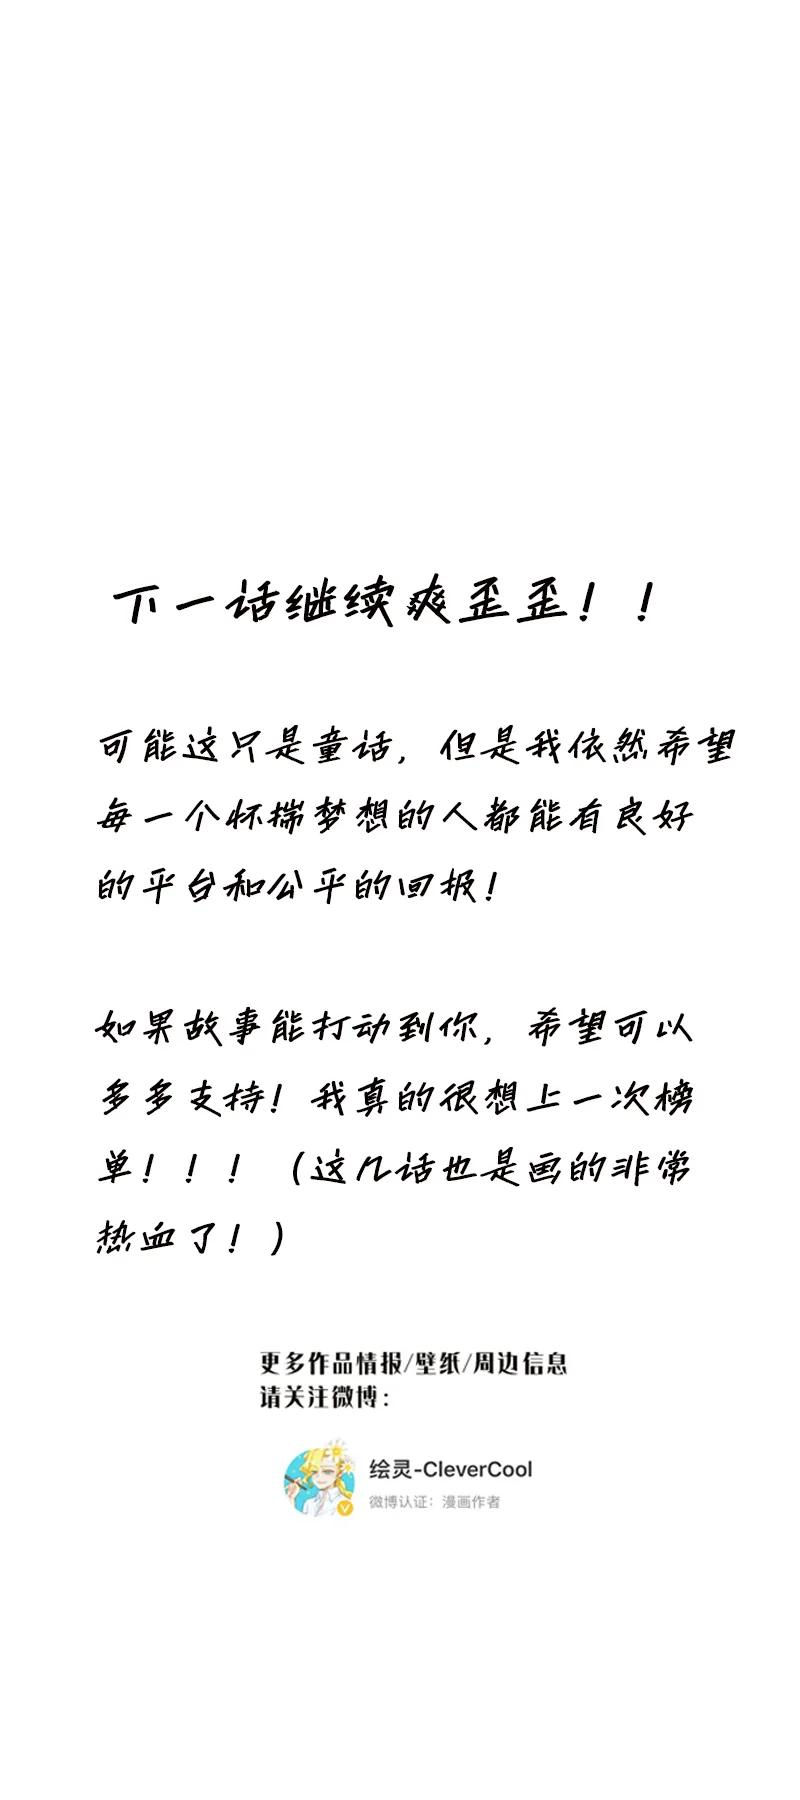 下一话继续爽歪歪！！
可能这只是童话，但是我依然希望
每一个怀揣梦想的人都能有良好
的平台和公平的回报！
如果故事能打动到你，希望可以
多多支持！我真的很想上一次榜
单！！！（这几话也是画的非常
热血了！）
更多作品情报/壁纸/周边信息
请关注微博：
绘灵-CleverCool
微博认证：漫画作者